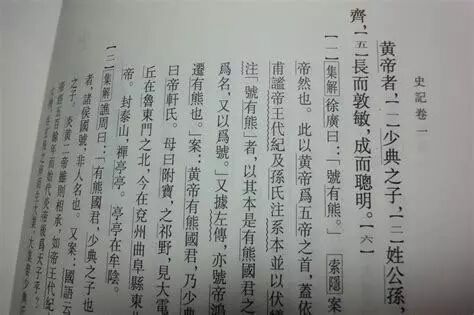 史記卷一
黃帝者，〔一〕少典之子，〔二〕姓公孫，
齊，〔五〕長而敦敏，成而聰明。〔六〕
〔一〕集解徐廣曰：「號有熊。」 索隱案
帝然也。此以黃帝爲五帝之首，蓋依
甫謐帝王代紀及孫氏注系本並以伏犧
注「號有熊」者，以其本是有熊國君之
爲名，又以爲號。又據左傳，亦號帝鴻
遷有熊也。」案：黃帝有熊國君，乃少典
曰帝軒氏。母曰附寶，之祁野，見大電
丘在魯東門之北，今在兗州曲阜縣東
帝。封泰山，禪亭亭。亭亭在牟陰。
〔二〕集解譙周曰：「有熊國君，少典之子也
者，諸侯國號，非人名也。又案：國語云
之子。炎黃二帝雖則相承，如帝王代紀